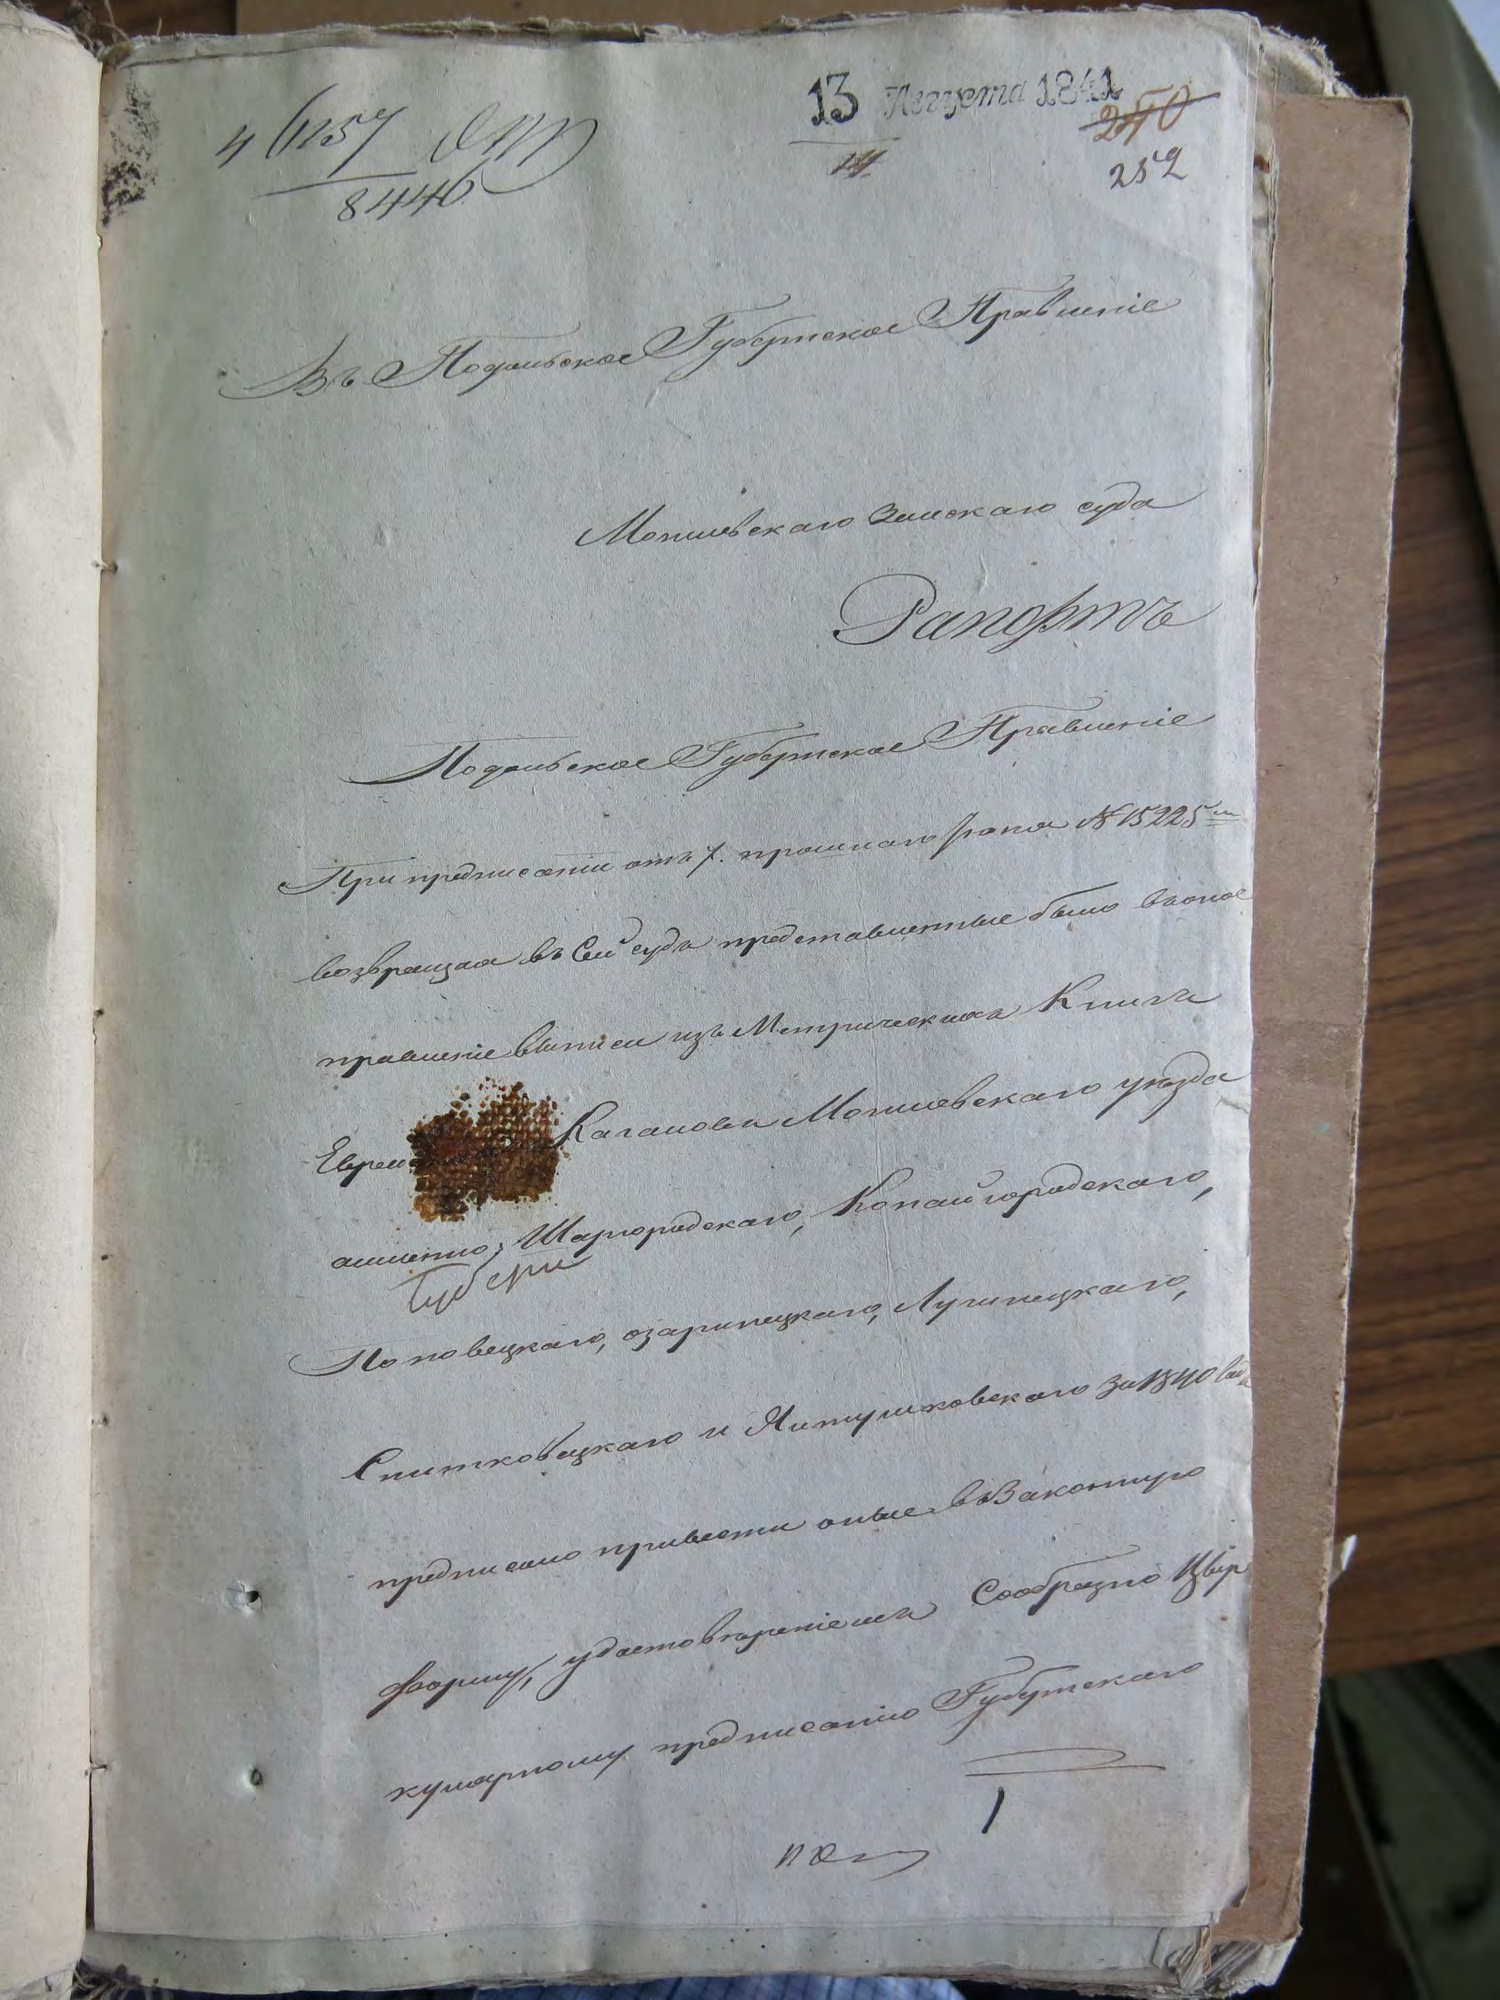 13 Августа 1841
250
252
8446
Въ Подольское Губернское Правленіе
Могилевскаго Земскаго суда
Рапортъ
Подольское Губернское Правленіе
При предписаніи отъ 7. прошлаго Іюня № 15225
возвращая въ Сей судъ представленные было въ оное
правленіе выписи изъ Метрическихъ Книгъ
Еврей Кагаловъ Могилевскаго уѣзда
аименно, Шаргородскаго, Копайгородскаго,
Лоповецкаго, озаринецкаго, Лучинецкаго,
Снитковецкаго и Ялтушковскаго за 1840 годъ
предписало привести оные въ Законную
форму, удостовѣреніемъ Сообразно Цыр
кулярному предписанію Губернскаго